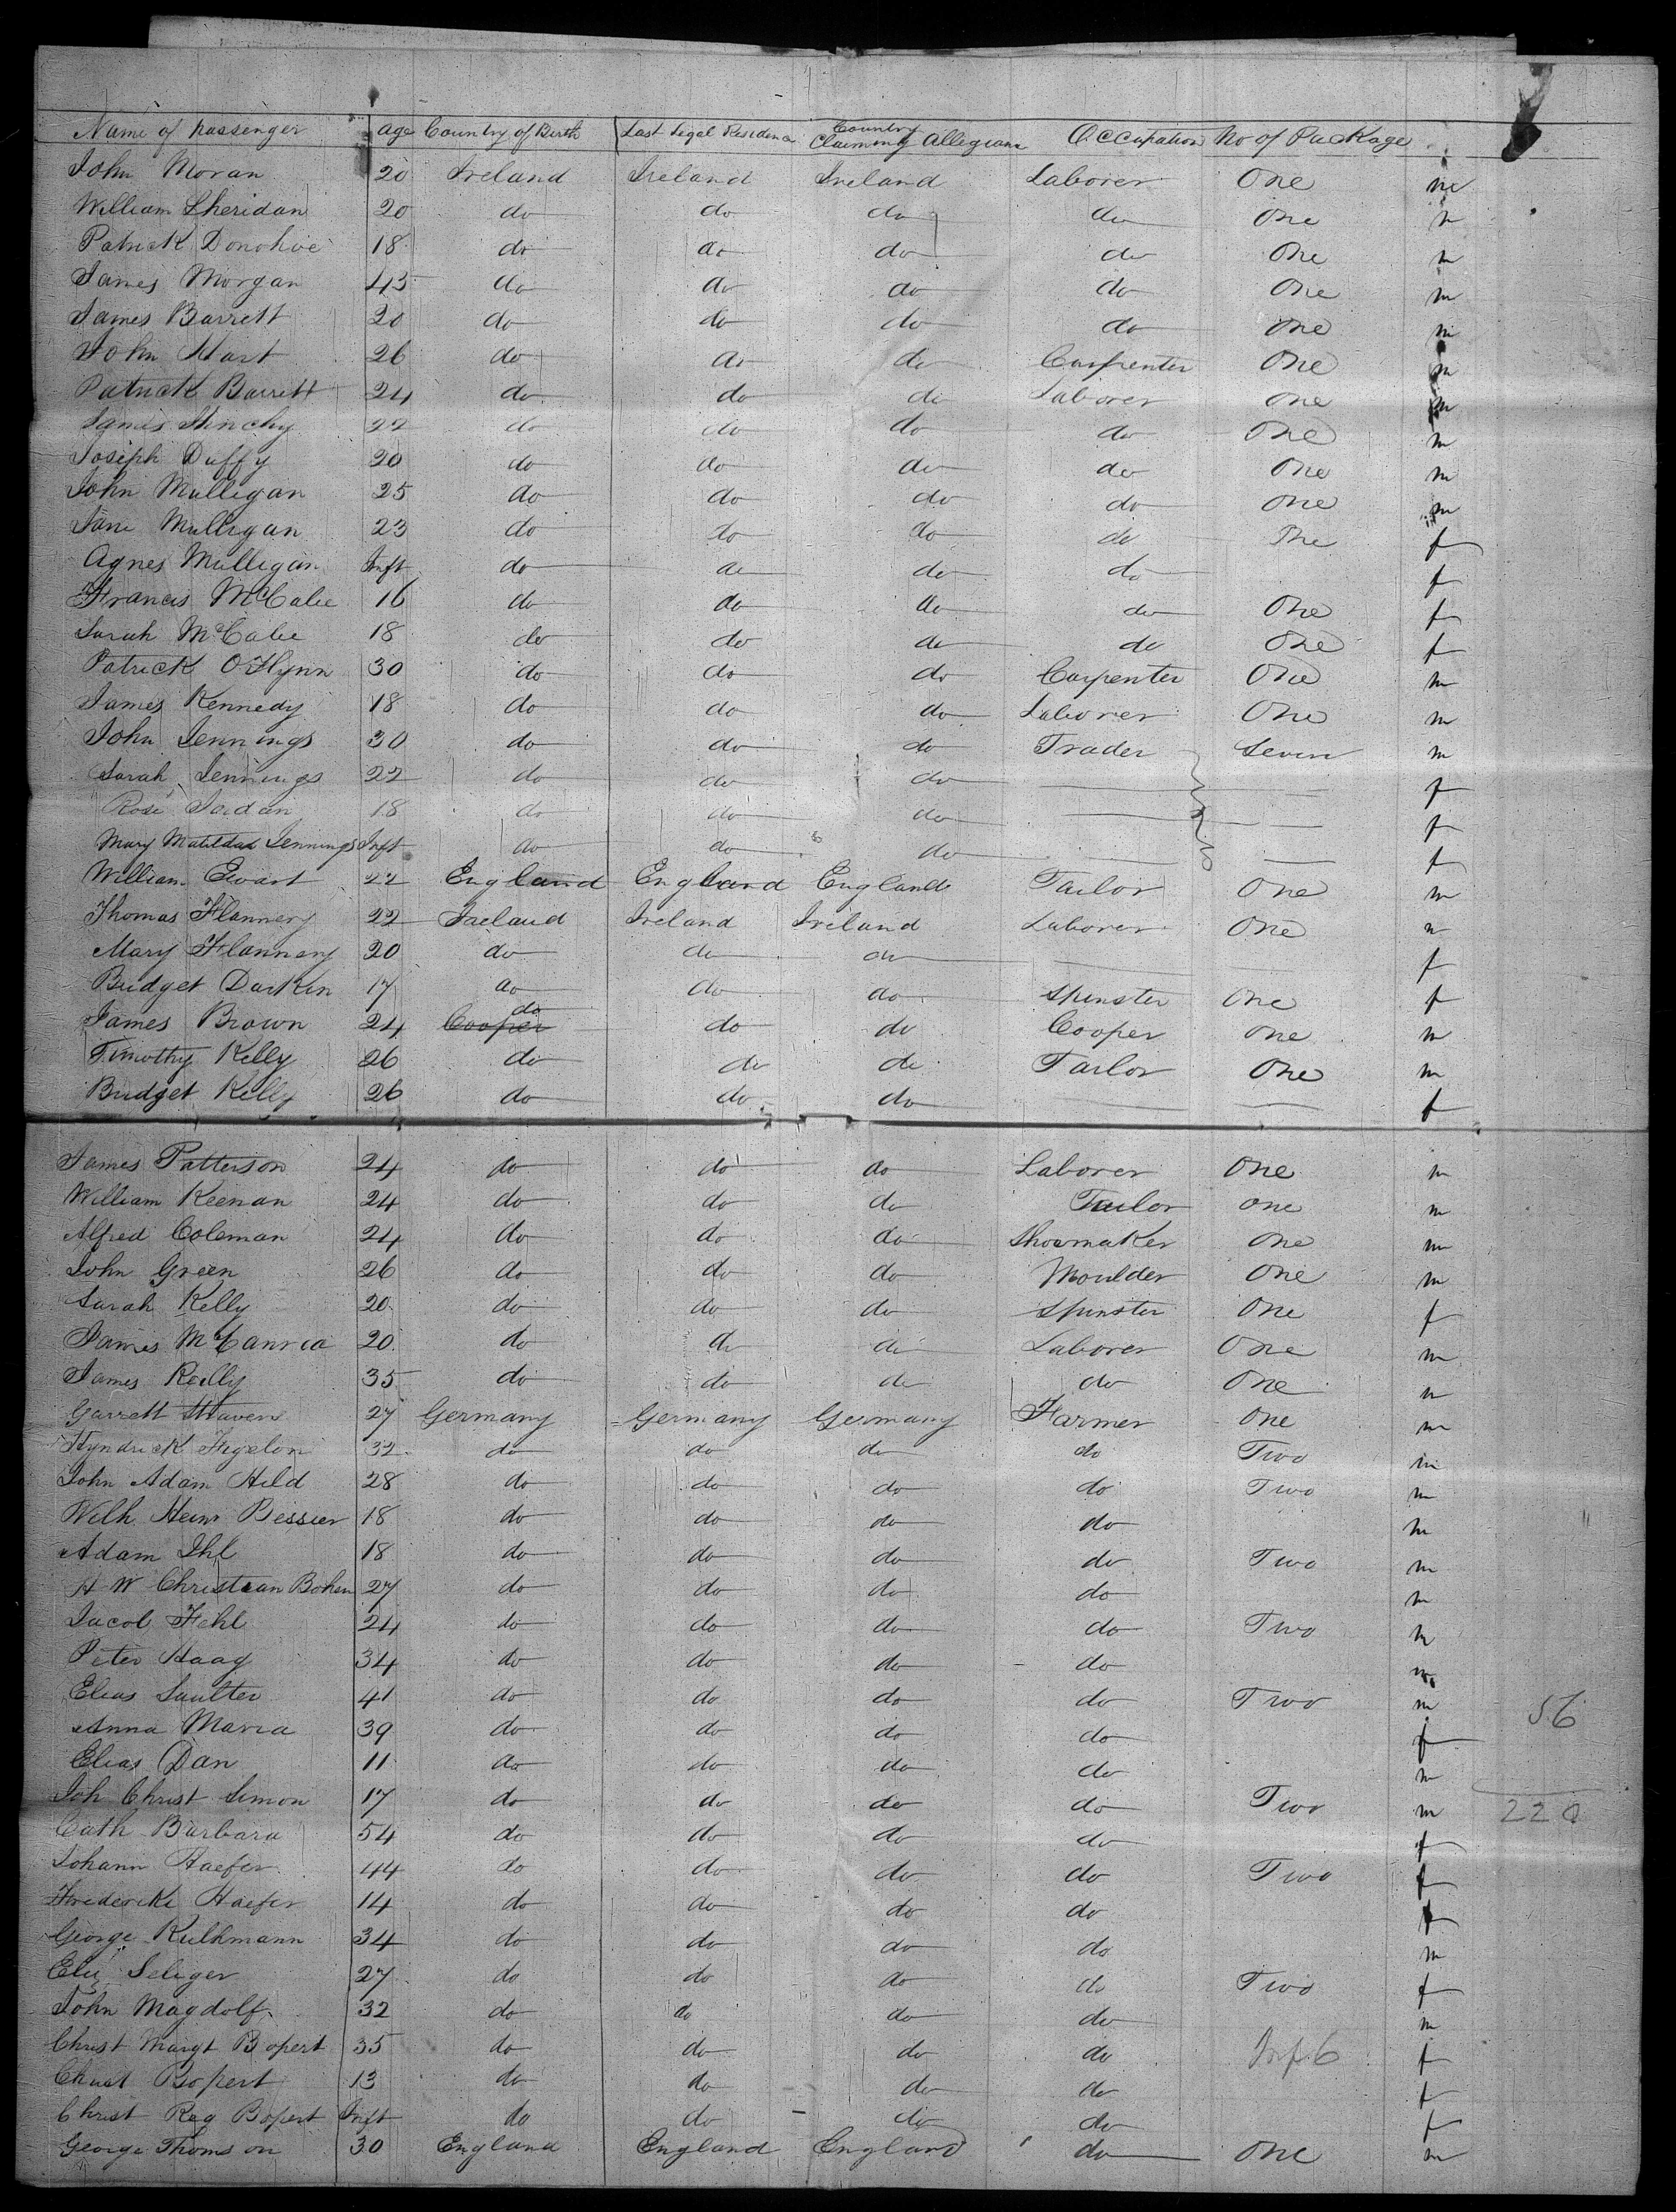 Name of passenger age Country of Birth Last Legal Residence Country Claiming Allegiance Occupation No of Package
John Moran 20 Ireland Ireland Ireland Laborer One m
William Sheridan 20 do do do do One m
Patrick Donohue 18 do do do do One m
James Morgan 45 do do do do One m
James Barrett 20 do do do do One m
John Hart 26 do do do Carpenter One m
Patrick Barrett 24 do do do Laborer One m
James 22 do do do do One m
Joseph Duffy 20 do do do do One m
John Mulligan 25 do do do do One m
Jane Mulligan 23 do do do do One f
Agnes Mulligan Inft do do do do f
Francis McCabe 16 do do do do One f
Sarah McCabe 18 do do do do One f
Patrick O'Flynn 30 do do do Carpenter One m
James Kennedy 18 do do do Laborer One m
John Jennings 30 do do do Trader Seven m
Sarah Jennings 22 do do do f
Rose Jordan 18 do do do f
Mary Matildas Jennings Inft do do do f
William Ewart 22 England England England Tailor One m
Thomas Flannery 22 Ireland Ireland Ireland Laborer One m
Mary Flannery 20 do do do f
Bridget Durkin 17 do do do Spinster One f
James Brown 24 Cooper do do do Cooper one m
Timothy Kelly 26 do do do Tailor One m
Bridget Kelly 26 do do do f
James Patterson 24 do do do Laborer One m
William Keenan 24 do do do Tailor one m
Alfred Coleman 24 do do do Shoemaker One m
John Green 26 do do do Moulder One m
Sarah Kelly 20 do do do Spinster One f
James 20 do do do Laborer One m
James Reilly 35 do do do do One m
Garrett 27 Germany Germany Germany Farmer One m
Hyndrick Figelon 32 do do do do Two m
John Adam Hild 28 do do do do Two m
Wilh Heinr Bessier 18 do do do do m
Adam Ihl 18 do do do do Two m
H W Christian Bohen 27 do do do do m
Jacob Fehl 24 do do do do Two m
Peter Haag 34 do do do do m
Elias Saulter 41 do do do do Two m 56
Anna Maria 39 do do do do f
Elias Dan 11 do do do do m
Joh Christ Simon 17 do do do do Two m 220
Cath Barbara 54 do do do do f
Johann Haefer 44 do do do do Two f
Fredericke Haefer 14 do do do do f
George Kulhmann 34 do do do do m
Seliger 27 do do do do Two f
John Magdolf 32 do do do do m
Christ Margt Bopert 35 do do do do Inf. 6 f
Christ Bopert 13 do do do do f
Christ Reg Bopert Inft do do do do f
George Thomson 30 England England England do One m